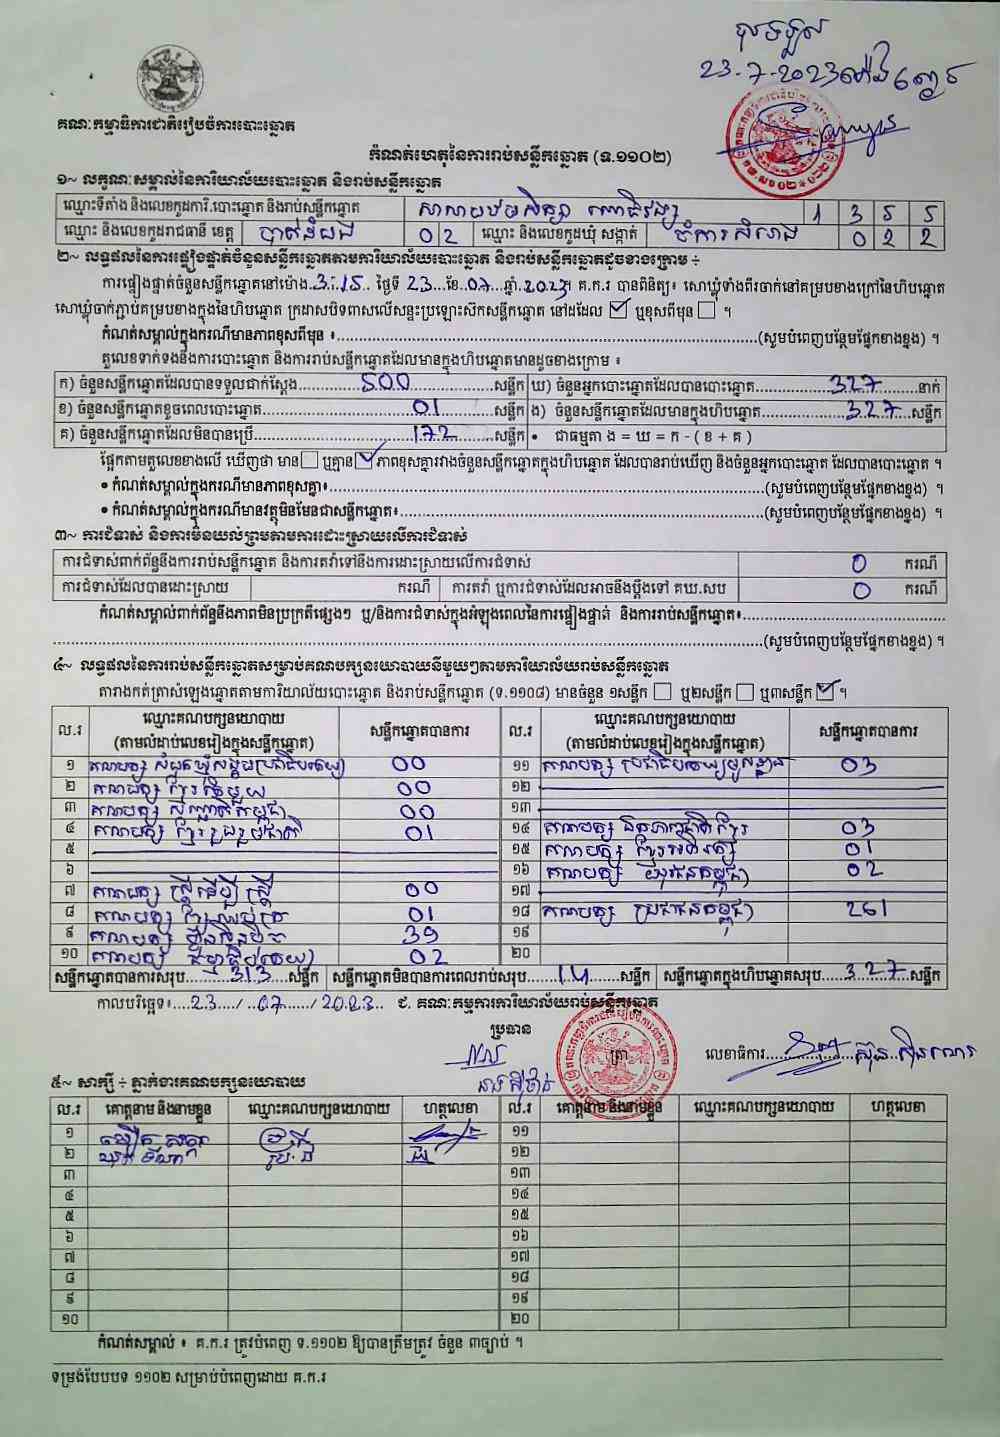 បានទទួល
23-7-2023
គណៈកម្មាធិការជាតិរៀបចំការបោះឆ្នោត
កំណត់ហេតុនៃការរាប់សន្លឹកឆ្នោត (ទ.១១០២)
១~ លក្ខណៈសម្គាល់នៃការិយាល័យបោះឆ្នោត និងរាប់សន្លឹកឆ្នោត
ឈ្មោះទីតាំង និងលេខកូដការិ.បោះឆ្នោត និងរាប់សន្លឹកឆ្នោត សាលាបឋមសិក្សា ពោធិវង្ស 1 3 5 5
ឈ្មោះ និងលេខកូដរាជធានី ខេត្ត បាត់ដំបង 0 2 ឈ្មោះ និងលេខកូដឃុំ សង្កាត់ ចំការសំរោង 0 2 2
២~ លទ្ធផលនៃការផ្ទៀងផ្ទាត់ចំនួនសន្លឹកឆ្នោតតាមការិយាល័យបោះឆ្នោត និងរាប់សន្លឹកឆ្នោតដូចខាងក្រោម ÷
ការផ្ទៀងផ្ទាត់ចំនួនសន្លឹកឆ្នោតនៅម៉ោង..3:15.. ថ្ងៃទី 23..ខែ..07..ឆ្នាំ.2023។ គ.ក.រ បានពិនិត្យ៖ សោឃ្លុំទាំងពីរចាក់នៅគម្របខាងក្រៅនៃហិបឆ្នោត
សោឃ្លុំចាក់ភ្ជាប់គម្របខាងក្នុងនៃហិបឆ្នោត ក្រដាសបិទពាសលើសន្ទះប្រឡោះស៊កសន្លឹកឆ្នោត នៅដដែល ☑ ឬខុសពីមុន ☐ ។
កំណត់សម្គាល់ក្នុងករណីមានភាពខុសពីមុន ៖..........(សូមបំពេញបន្ថែមផ្នែកខាងខ្នង) ។
តួលេខទាក់ទងនឹងការបោះឆ្នោត និងការរាប់សន្លឹកឆ្នោតដែលមានក្នុងហិបឆ្នោតមានដូចខាងក្រោម ៖
ក) ចំនួនសន្លឹកឆ្នោតដែលបានទទួលជាក់ស្តែង.....500.....សន្លឹក ឃ) ចំនួនអ្នកបោះឆ្នោតដែលបានបោះឆ្នោត.....327.....នាក់
ខ) ចំនួនសន្លឹកឆ្នោតខូចពេលបោះឆ្នោត.....01.....សន្លឹក ង) ចំនួនសន្លឹកឆ្នោតដែលមានក្នុងហិបឆ្នោត.....327.....សន្លឹក
គ) ចំនួនសន្លឹកឆ្នោតដែលមិនបានប្រើ.....172.....សន្លឹក • ជាធម្មតា ង = ឃ = ក - ( ខ + គ )
ផ្អែកតាមតួលេខខាងលើ ឃើញថា មាន ☐ ឬគ្មាន ☑ ភាពខុសគ្នារវាងចំនួនសន្លឹកឆ្នោតក្នុងហិបឆ្នោត ដែលបានរាប់ឃើញ និងចំនួនអ្នកបោះឆ្នោត ដែលបានបោះឆ្នោត ។
• កំណត់សម្គាល់ក្នុងករណីមានភាពខុសគ្នា៖..........(សូមបំពេញបន្ថែមផ្នែកខាងខ្នង) ។
• កំណត់សម្គាល់ក្នុងករណីមានវត្ថុមិនមែនជាសន្លឹកឆ្នោត៖..........(សូមបំពេញបន្ថែមផ្នែកខាងខ្នង) ។
៣~ ការជំទាស់ និងការមិនយល់ព្រមតាមការដោះស្រាយលើការជំទាស់
ការជំទាស់ពាក់ព័ន្ធនឹងការរាប់សន្លឹកឆ្នោត និងការតវ៉ាទៅនឹងការដោះស្រាយលើការជំទាស់ 0 ករណី
ការជំទាស់ដែលបានដោះស្រាយ ករណី ការតវ៉ា ឬការជំទាស់ដែលអាចនឹងប្តឹងទៅ គឃ.សប 0 ករណី
កំណត់សម្គាល់ពាក់ព័ន្ធនឹងភាពមិនប្រក្រតីផ្សេងៗ ឬ/និងការជំទាស់ក្នុងអំឡុងពេលនៃការផ្ទៀងផ្ទាត់ និងការរាប់សន្លឹកឆ្នោត៖..........
..........(សូមបំពេញបន្ថែមផ្នែកខាងខ្នង) ។
៤~ លទ្ធផលនៃការរាប់សន្លឹកឆ្នោតសម្រាប់គណបក្សនយោបាយនីមួយៗតាមការិយាល័យរាប់សន្លឹកឆ្នោត
តារាងកត់ត្រាសំឡេងឆ្នោតតាមការិយាល័យបោះឆ្នោត និងរាប់សន្លឹកឆ្នោត (ទ.១១០៨) មានចំនួន ១សន្លឹក ☐ ឬ២សន្លឹក ☐ ឬ៣សន្លឹក ☑ ។
ល.រ ឈ្មោះគណបក្សនយោបាយ (តាមលំដាប់លេខរៀងក្នុងសន្លឹកឆ្នោត) សន្លឹកឆ្នោតបានការ ល.រ ឈ្មោះគណបក្សនយោបាយ (តាមលំដាប់លេខរៀងក្នុងសន្លឹកឆ្នោត) សន្លឹកឆ្នោតបានការ
១ គណបក្ស សំបុកឃ្មុំសង្គមប្រជាធិបតេយ្យ 00 ១១ គណបក្ស ប្រជាធិបតេយ្យមូលដ្ឋាន 03
២ គណបក្ស ខ្មែរតែមួយ 00 ១២
៣ គណបក្ស សញ្ជាតិកម្ពុជា 00 ១៣
៤ គណបក្ស ខ្មែររួបរួមជាតិ 01 ១៤ គណបក្ស ឯកភាពជាតិខ្មែរ 03
៥ ១៥ គណបក្ស ខ្មែរអភិរក្ស 01
៦ ១៦ គណបក្ស យុវជនកម្ពុជា 02
៧ គណបក្ស ស្ត្រីដើម្បីស្ត្រី 00 ១៧
៨ គណបក្ស ខ្មែរឈប់ក្រ 01 ១៨ គណបក្ស ប្រជាជនកម្ពុជា 261
៩ គណបក្ស ហ៊្វុនស៊ិនប៉ិច 39 ១៩
១០ គណបក្ស ធម្មាធិបតេយ្យ 02 ២០
សន្លឹកឆ្នោតបានការសរុប.....313.....សន្លឹក សន្លឹកឆ្នោតមិនបានការពេលរាប់សរុប.....14.....សន្លឹក សន្លឹកឆ្នោតក្នុងហិបឆ្នោតសរុប.....327.....សន្លឹក
កាលបរិច្ឆេទ៖....23..../..07..../2023.. ជ. គណៈកម្មការការិយាល័យរាប់សន្លឹកឆ្នោត
ប្រធាន
ត្រា
លេខាធិការ
៥~ សាក្សី ÷ ភ្នាក់ងារគណបក្សនយោបាយ
ល.រ គោត្តនាម និងនាមខ្លួន ឈ្មោះគណបក្សនយោបាយ ហត្ថលេខា ល.រ គោត្តនាម និងនាមខ្លួន ឈ្មោះគណបក្សនយោបាយ ហត្ថលេខា
១ ១១
២ ១២
៣ ១៣
៤ ១៤
៥ ១៥
៦ ១៦
៧ ១៧
៨ ១៨
៩ ១៩
១០ ២០
កំណត់សម្គាល់ ៖ គ.ក.រ ត្រូវបំពេញ ទ.១១០២ ឱ្យបានត្រឹមត្រូវ ចំនួន ៣ច្បាប់ ។
ទម្រង់បែបបទ ១១០២ សម្រាប់បំពេញដោយ គ.ក.រ